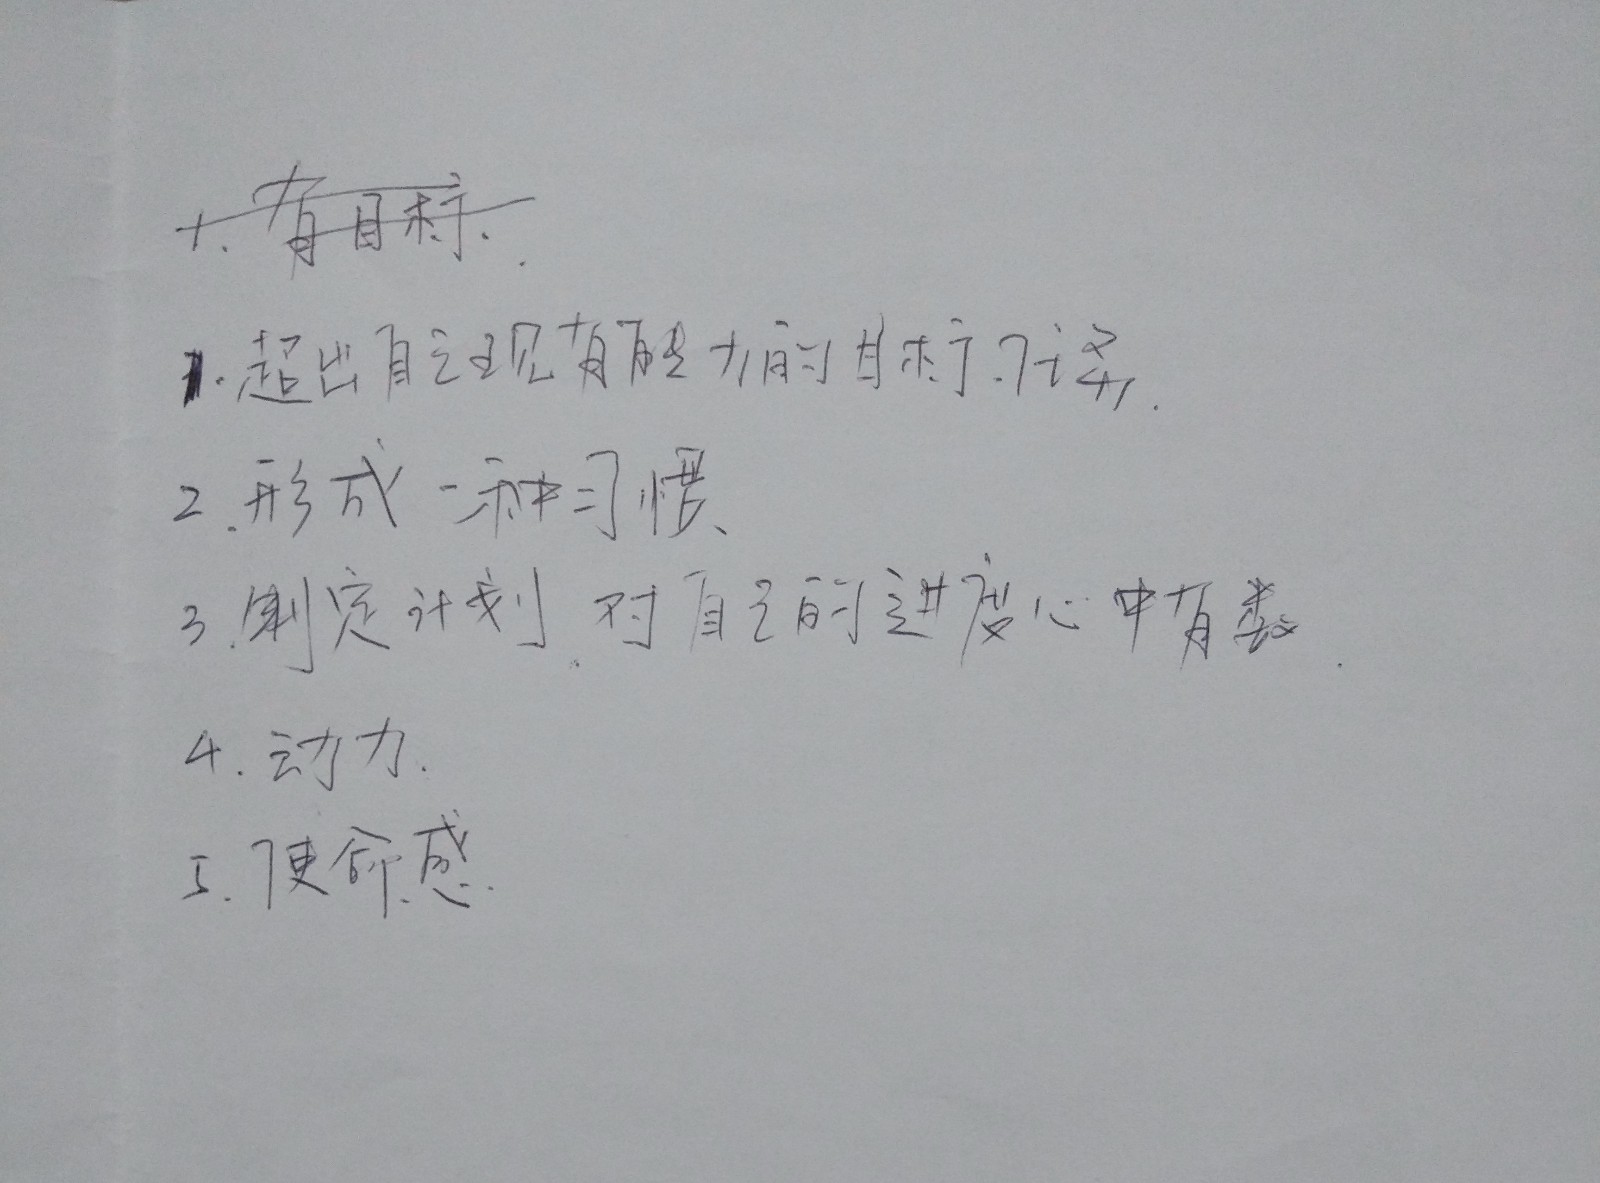 1. 有目标.
1. 超出自己现有能力的目标.任务.
2. 形成一种习惯、
3. 制定计划.对自己的进度心中有数.
4. 动力.
5. 使命感.